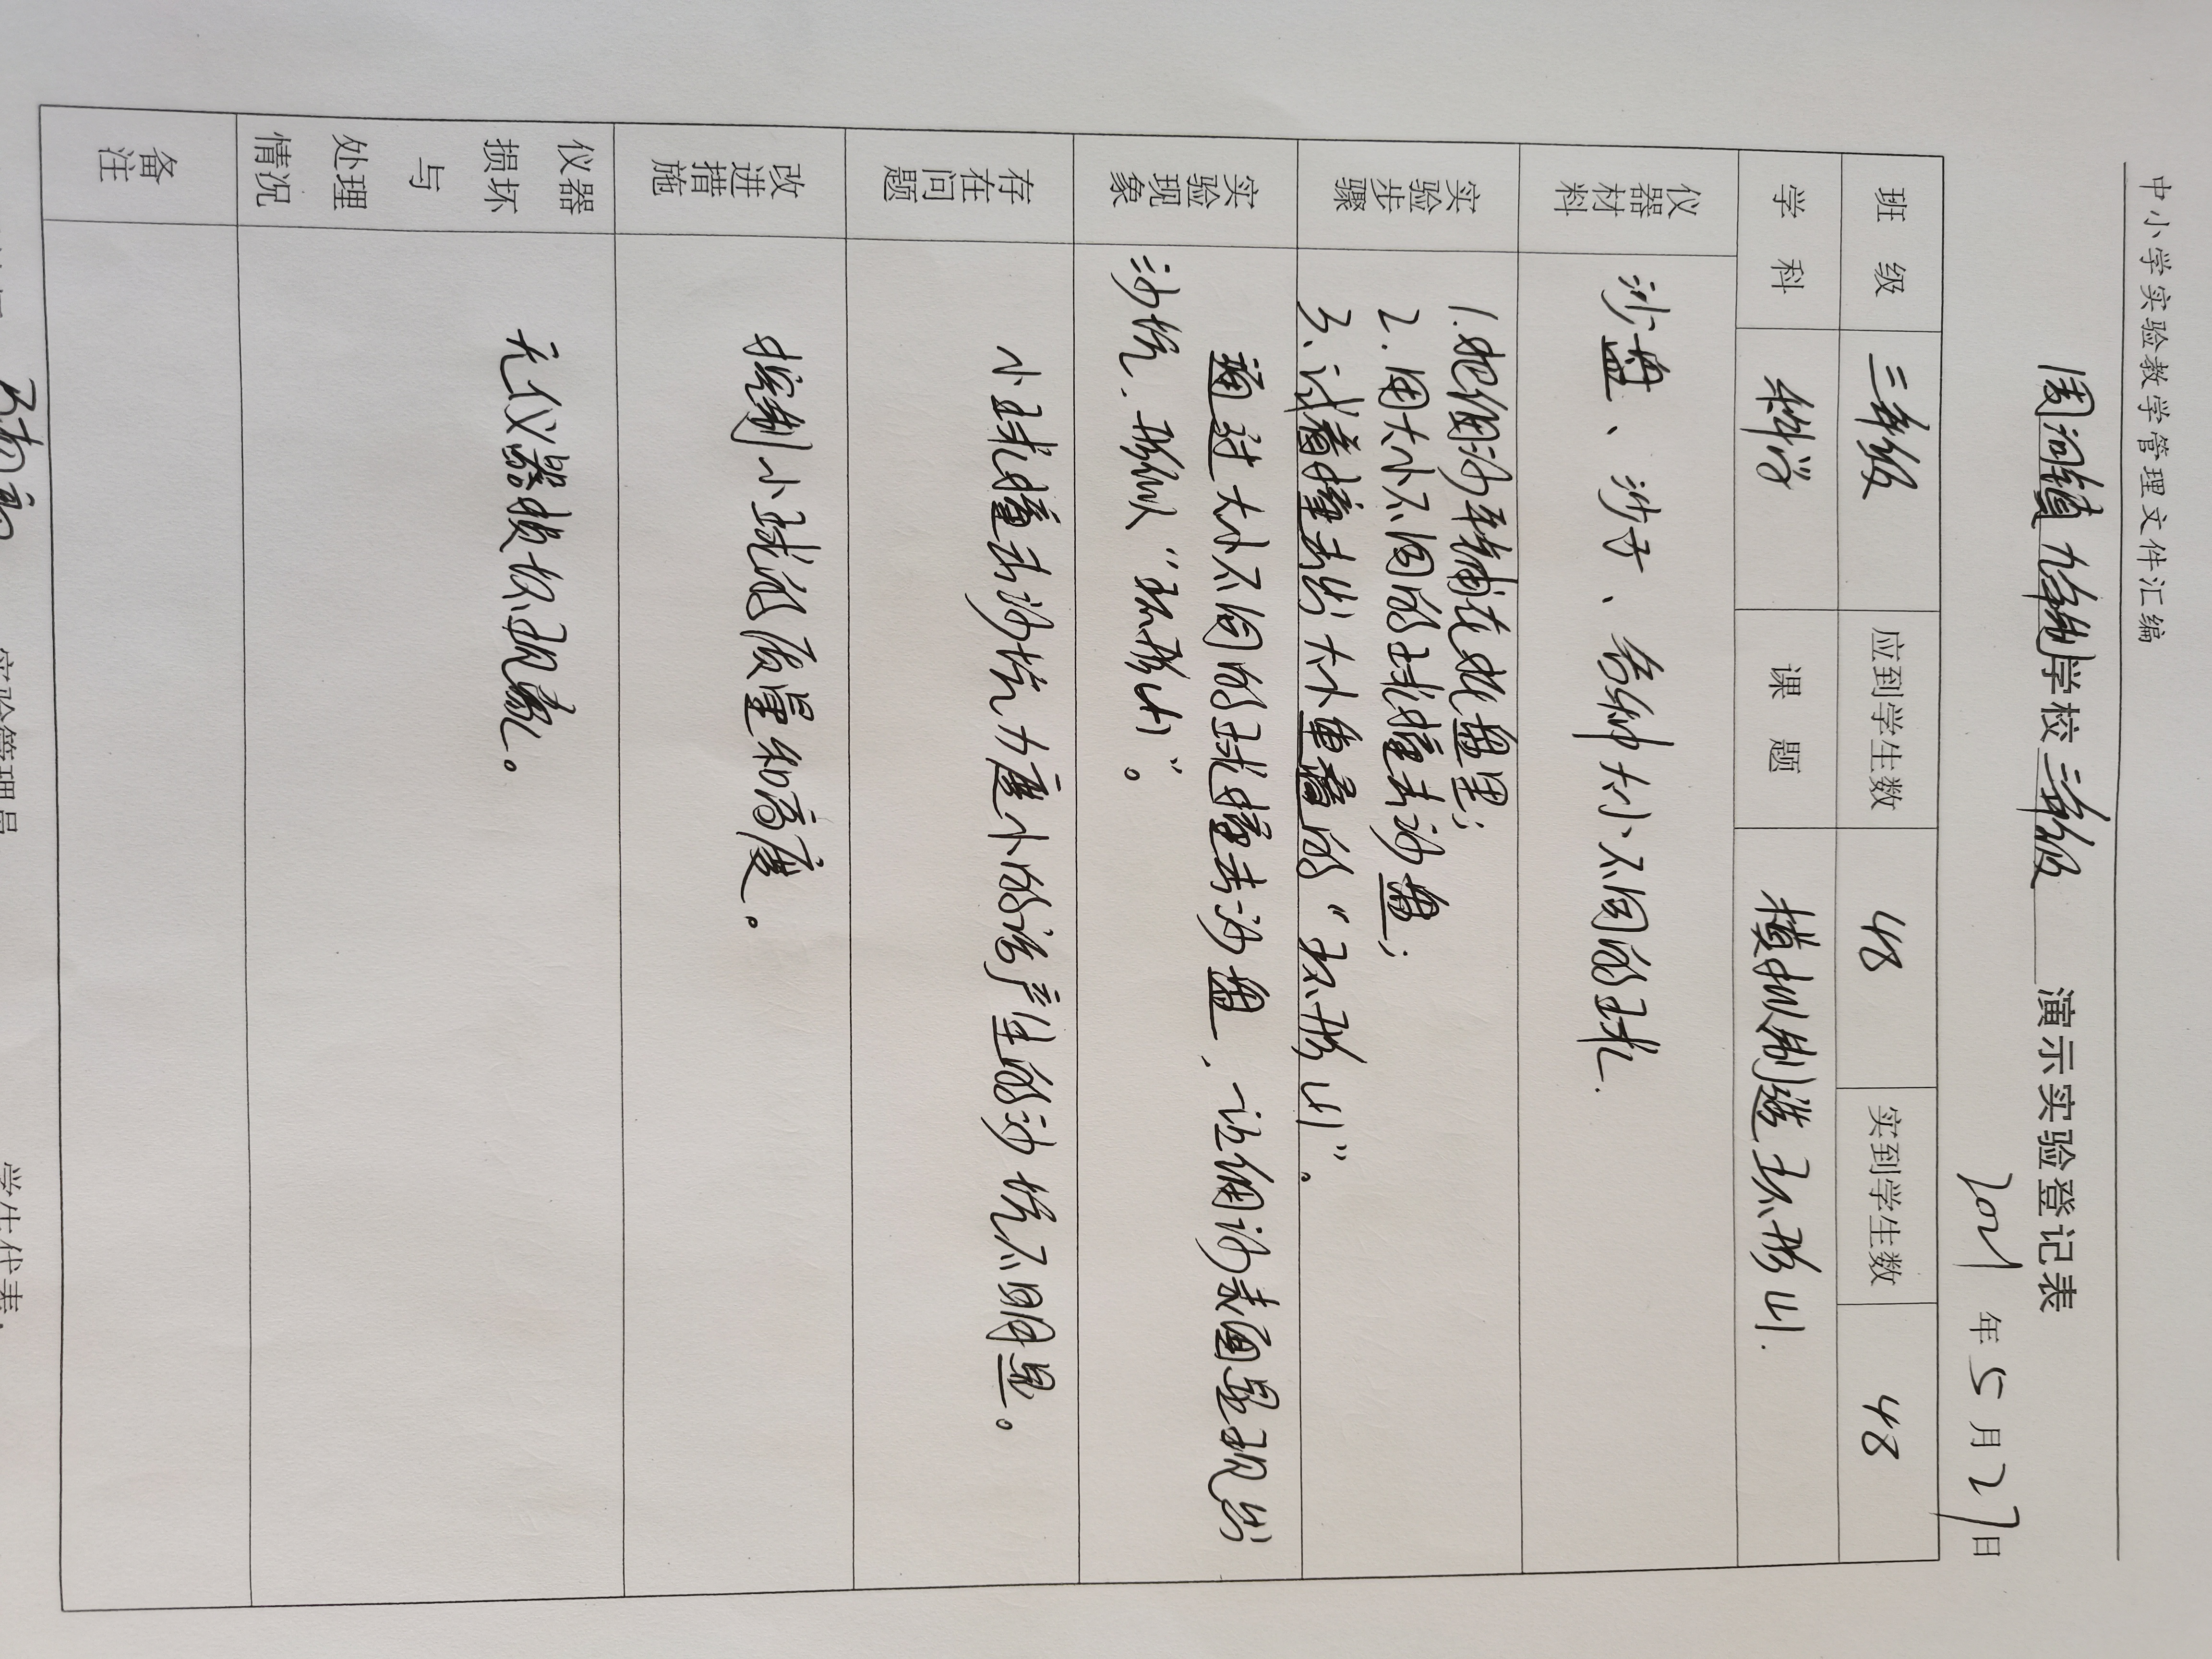 中小学实验教学管理文件汇编
周河镇九年制学校三年级 演示实验登记表
2021年5月27日
班级 三年级 应到学生数 48 实到学生数 48
学科 科学 课题 模拟制造环形山.
仪器材料 沙盘、沙子、各种大小不同的球.
实验步骤 1.把细沙平铺在沙盘里;
2.用大小不同的球撞击沙盘;
3.试着撞击出大小重叠的“环形山”.
实验现象 通过大小不同的球撞击沙盘,让细沙表面显现出
沙坑,形似“环形山”。
存在问题 小球撞击沙坑力度小的话产生的沙坑不明显。
改进措施 控制小球的质量和高度。
仪器损坏与处理情况 无仪器损坏现象。
备注
实验管理员
学生代表: